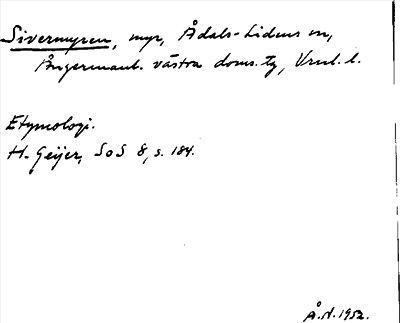 Sivermyren, myr, Ådals-Lidens sn,
Ångermanl. västra doms. tg, Vnrl. l.
Etymologi.
H. Geijer, SoS 8, s. 184.
Å.N. 1952.